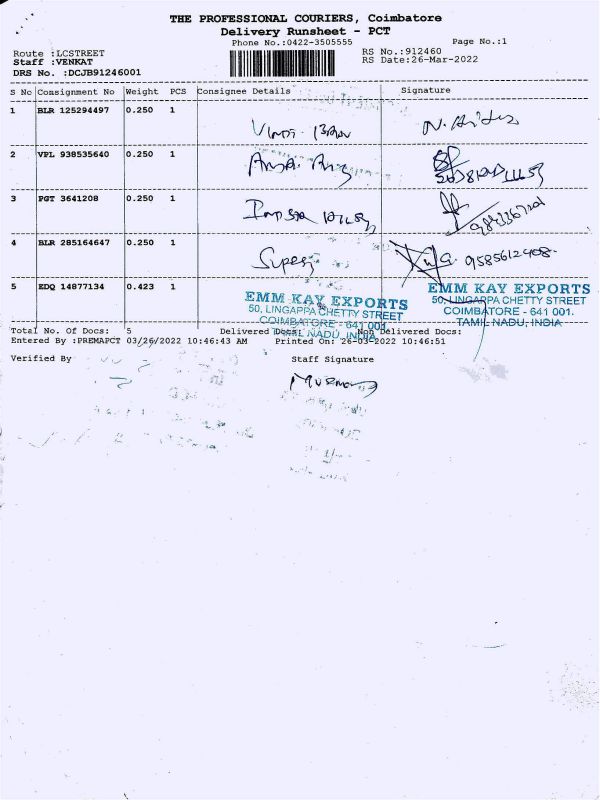 THE PROFESSIONAL COURIERS, Coimbatore
Delivery Runsheet - PCT
Phone No.:0422-3505555 Page No.:1
Route :LCSTREET RS No.:912460
Staff :VENKAT RS Date:26-Mar-2022
DRS No. :DCJB91246001
S No Consignment No Weight PCS Consignee Details Signature
1 BLR 125294497 0.250 1
2 VPL 938535640 0.250 1
3 PGT 3641208 0.250 1
4 BLR 285164647 0.250 1
9585612408
5 EDQ 14877134 0.423 1
EMM KAY EXPORTS EMM KAY EXPORTS
50, LINGAPPA CHETTY STREET 50, LINGAPPA CHETTY STREET
COIMBATORE - 641 001. COIMBATORE - 641 001.
TAMIL NADU, INDIA TAMIL NADU, INDIA
Total No. Of Docs: 5 Delivered Docs: Non Delivered Docs:
Entered By :PREMAPCT 03/26/2022 10:46:43 AM Printed On: 26-03-2022 10:46:51
Verified By Staff Signature